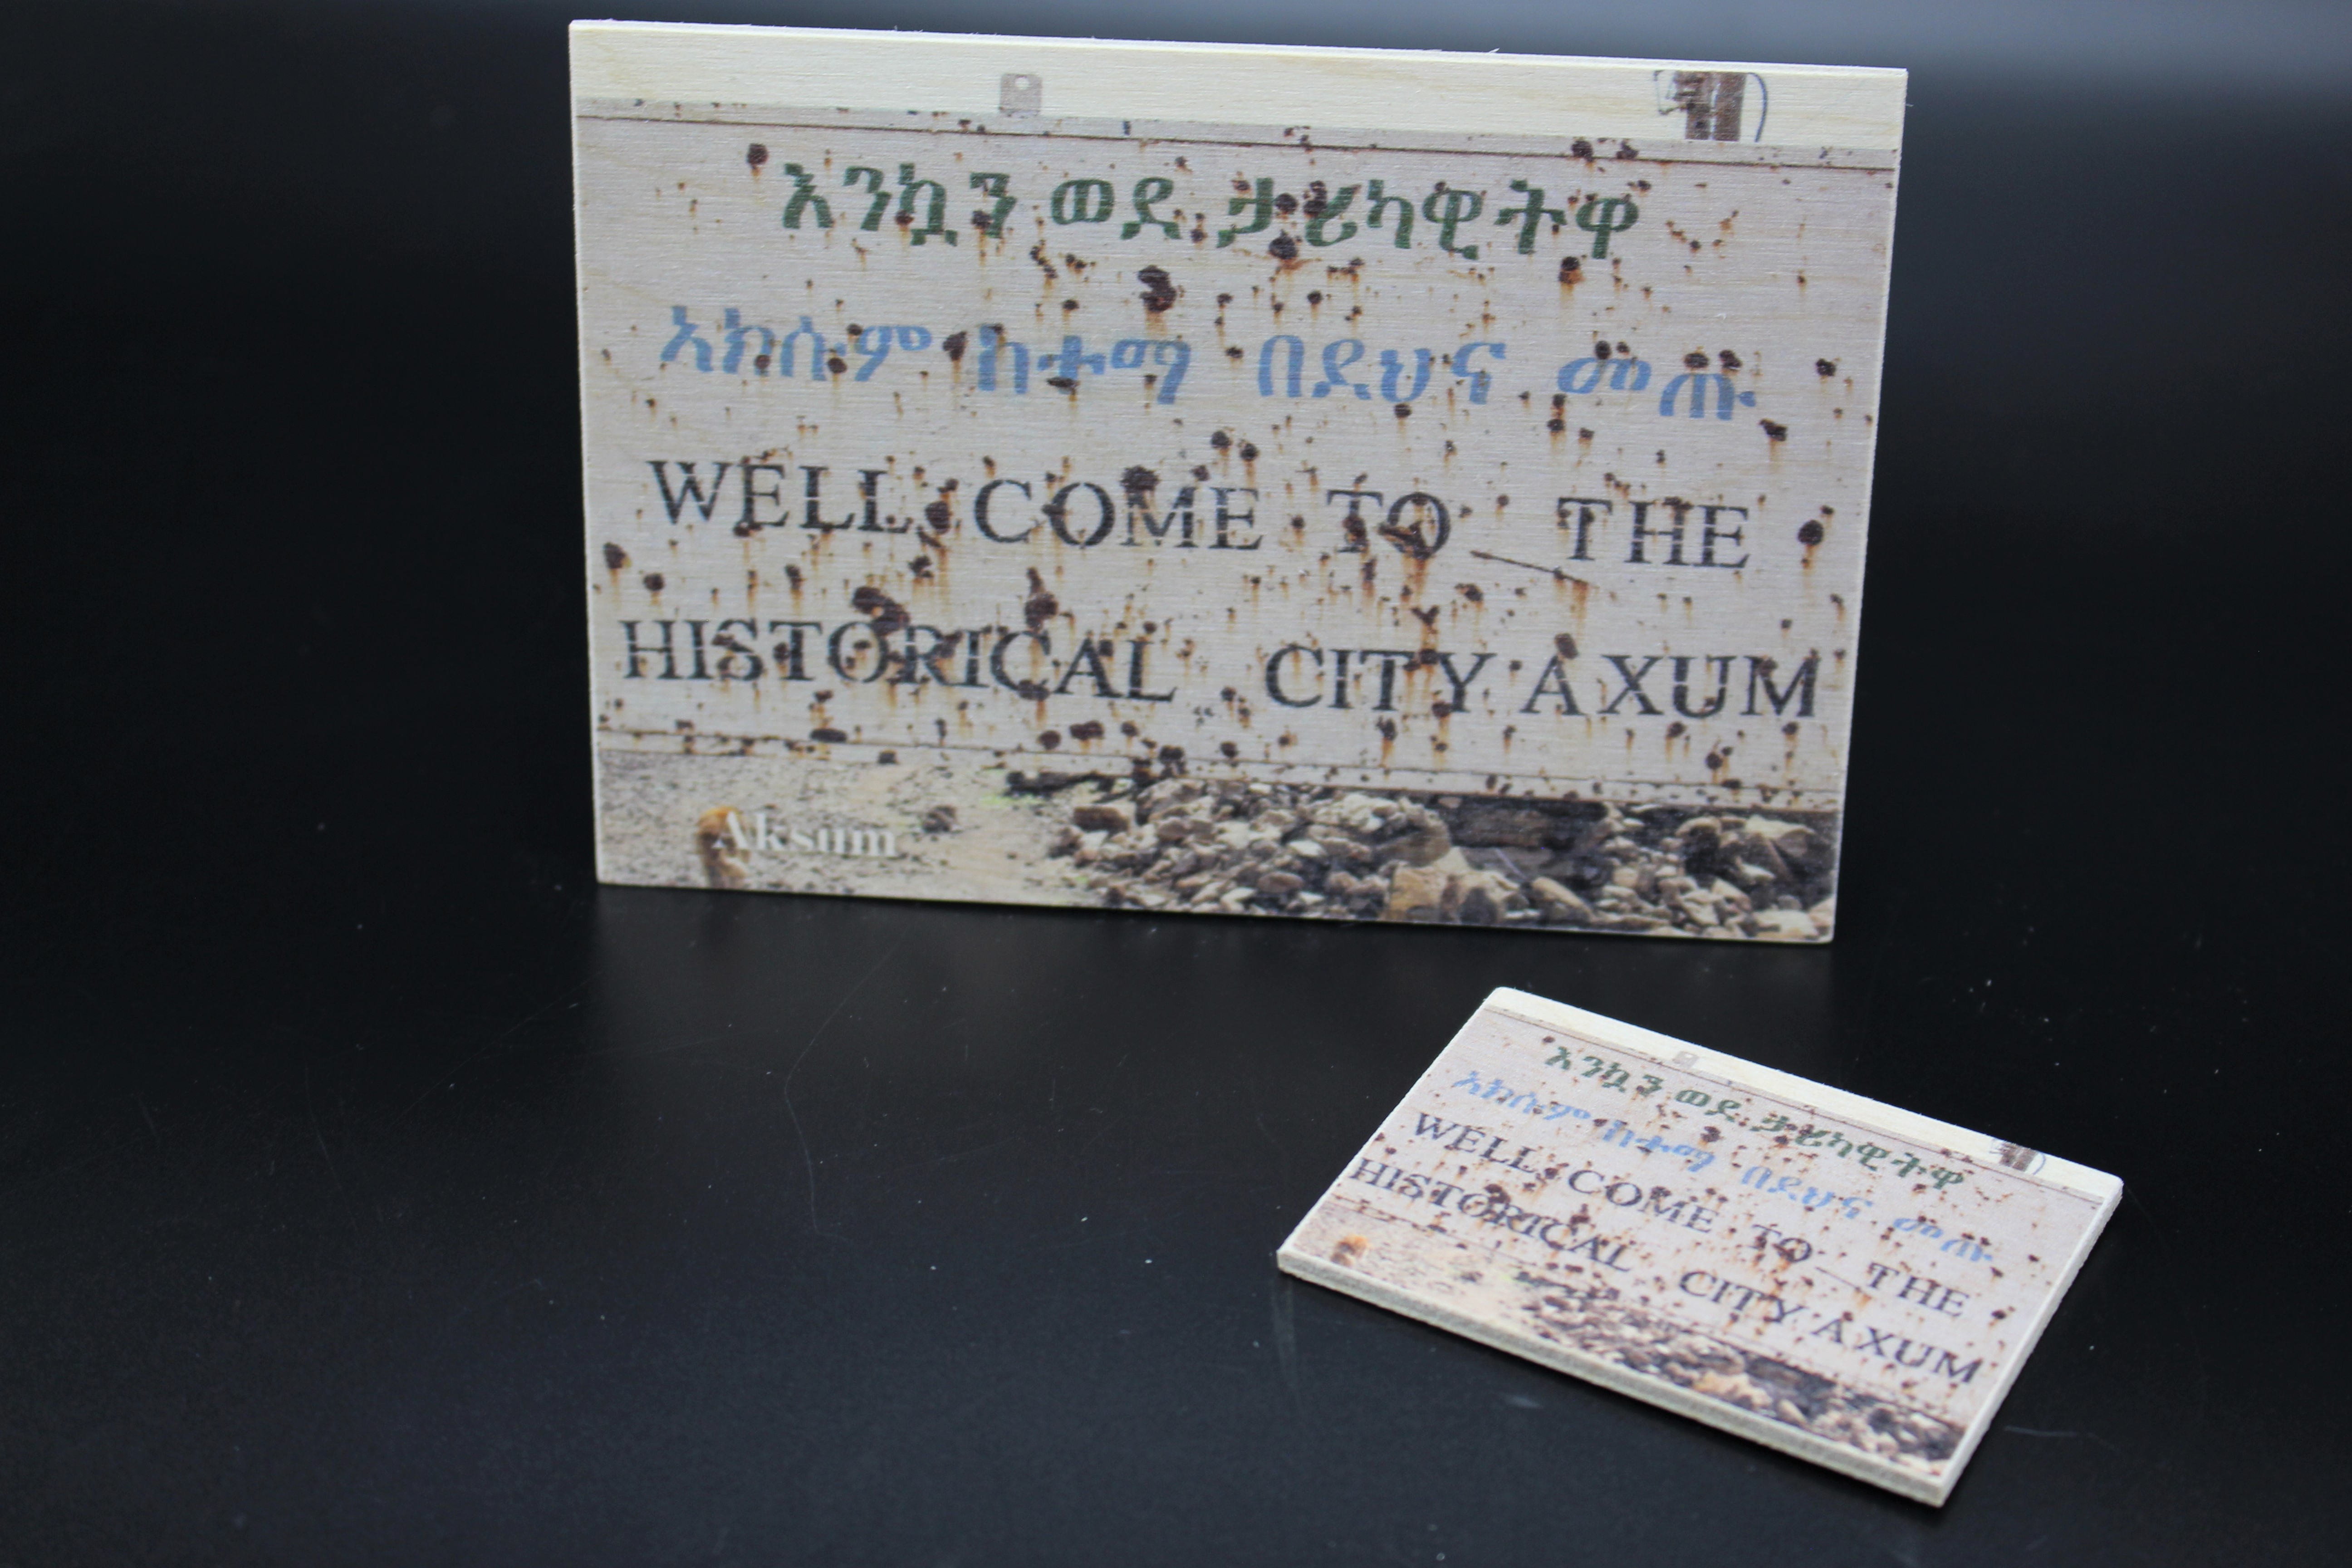 እንኳን ወደ ታሪካዊትዋ
አክሱም ከተማ በደህና መጡ
WELL COME TO THE
HISTORICAL CITY AXUM
Aksum
እንኳን ወደ ታሪካዊትዋ
አክሱም ከተማ በደህና መጡ
WELL COME TO THE
HISTORICAL CITY AXUM